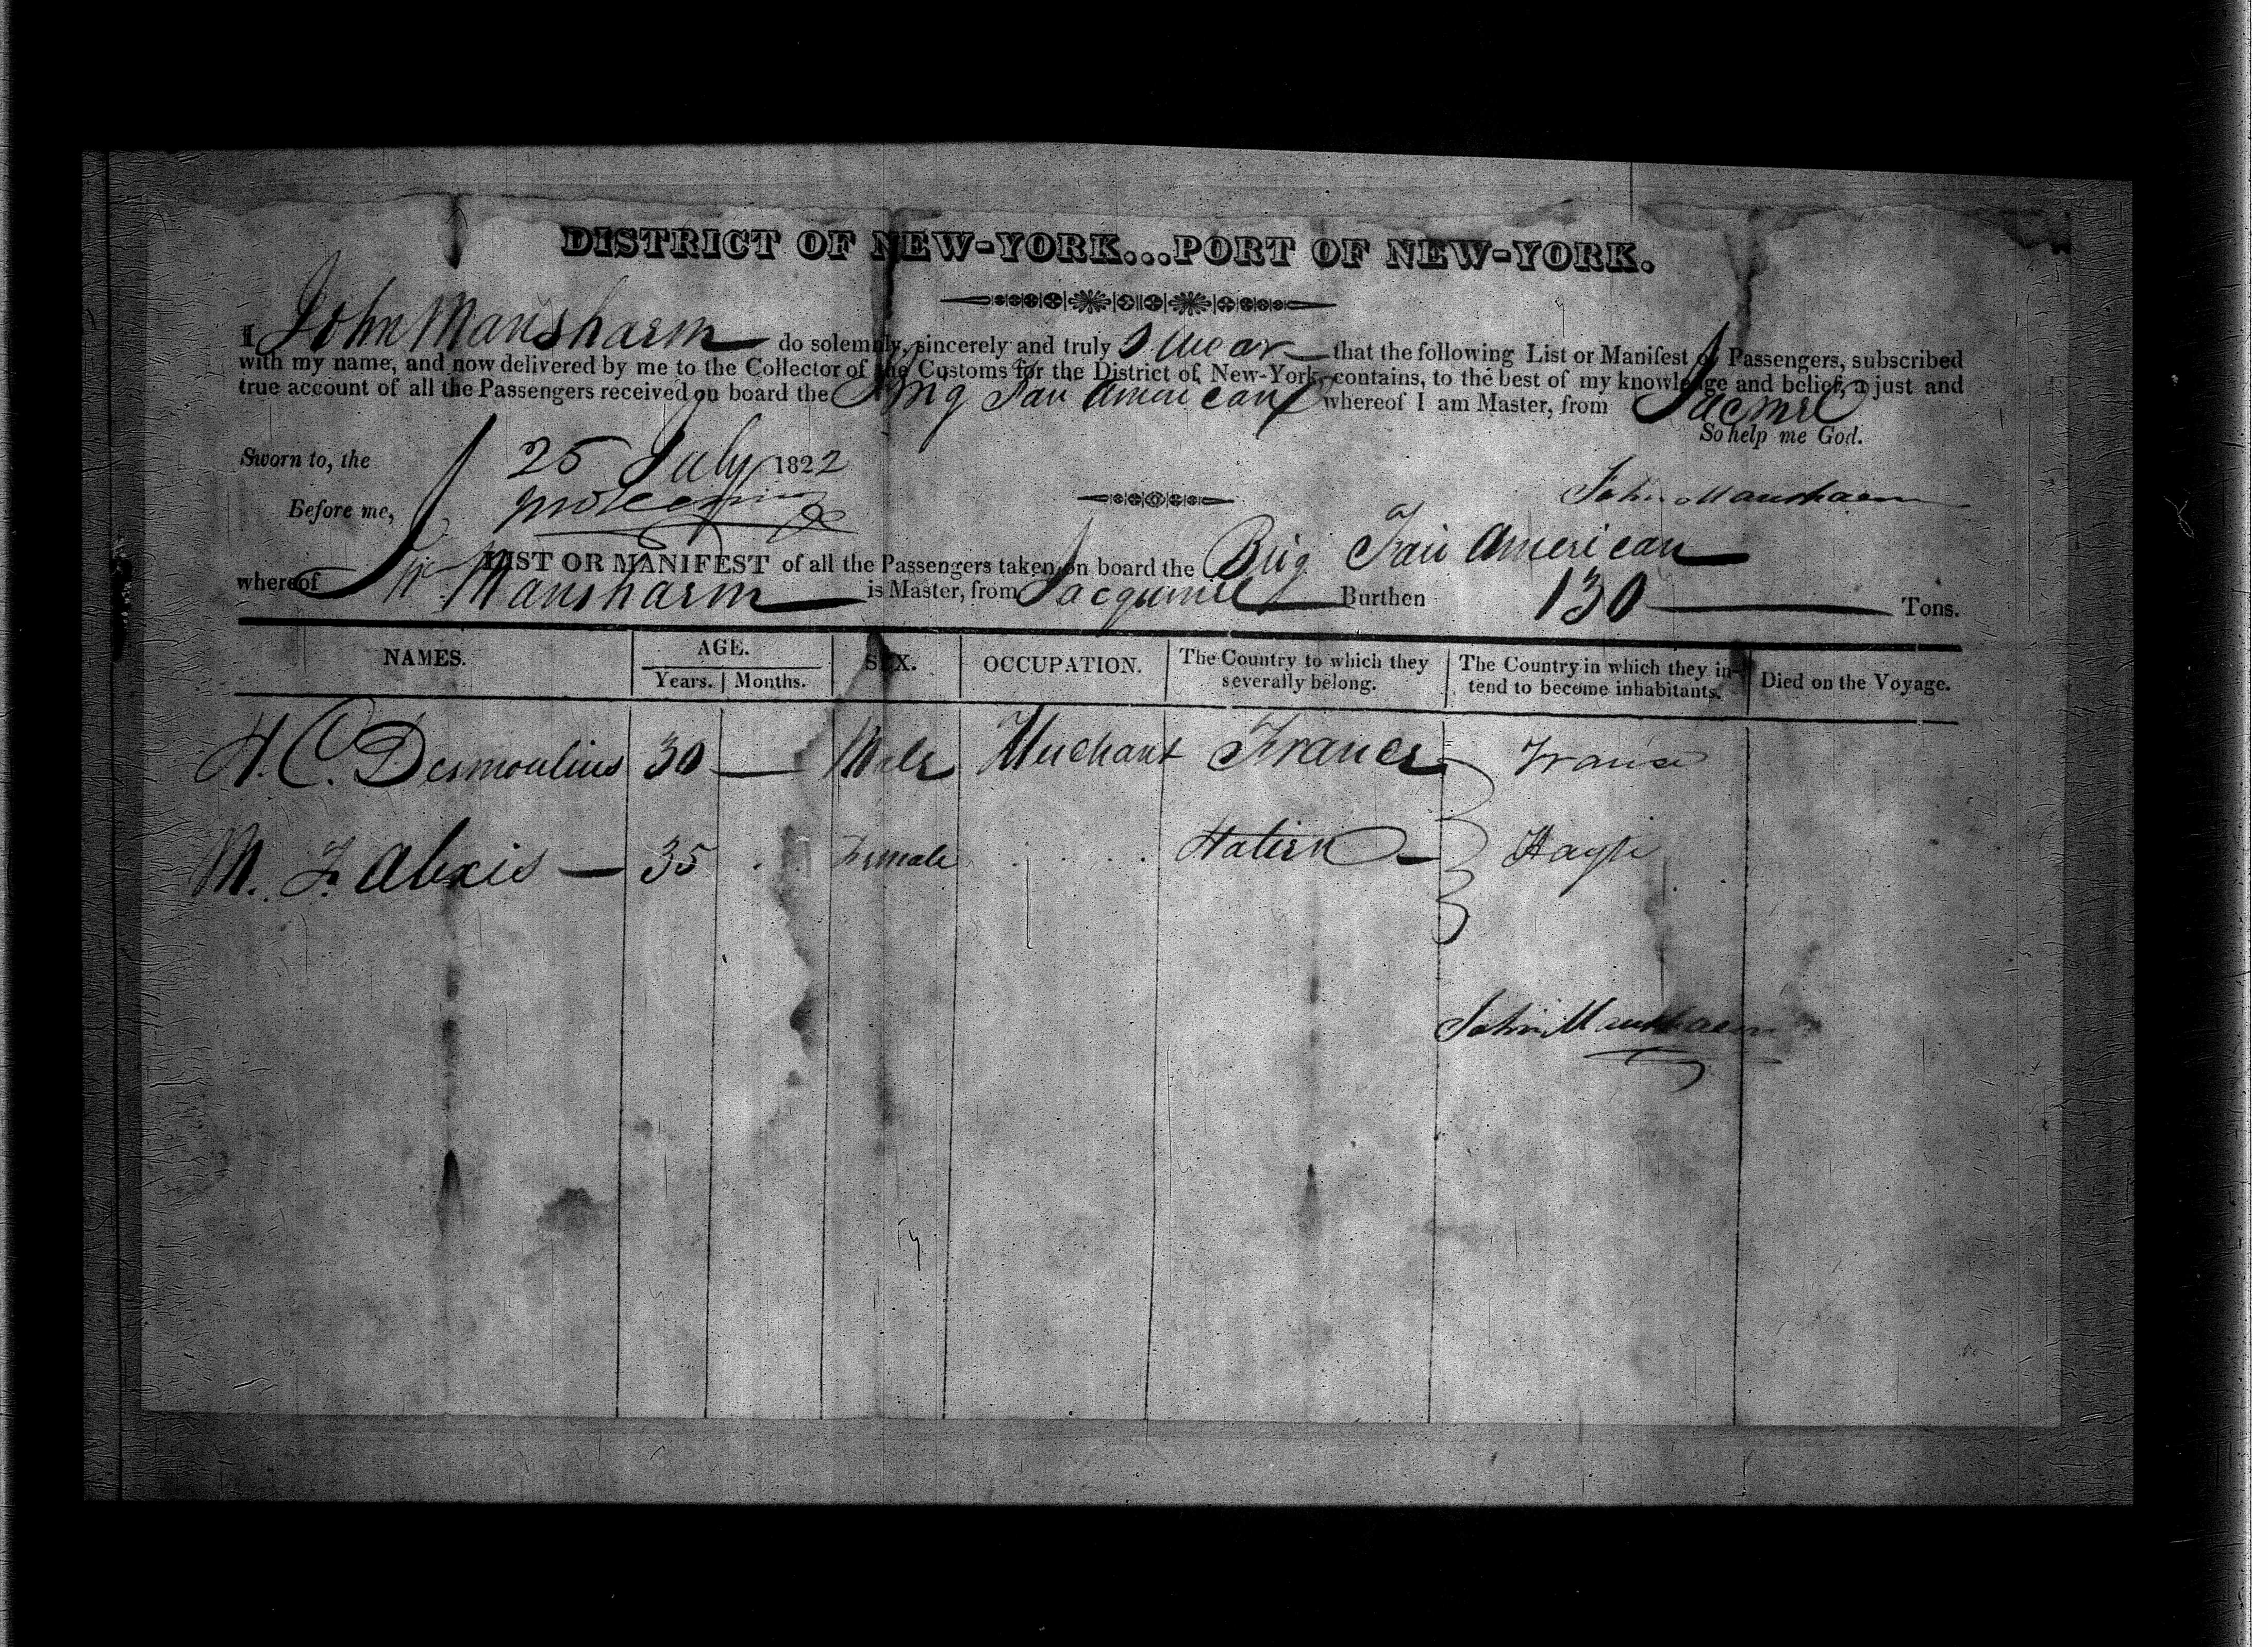 DISTRICT OF NEW-YORK...PORT OF NEW-YORK.
I John Mansharm do solemnly, sincerely and truly Swear that the following List or Manifest of Passengers, subscribed
with my name, and now delivered by me to the Collector of the Customs for the District of New-York, contains, to the best of my knowledge and belief, a just and
true account of all the Passengers received on board the Brig Fair American whereof I am Master, from Jacmel
So help me God.
Sworn to, the 25 July 1822
John Mansharm
Before me,
LIST OR MANIFEST of all the Passengers taken on board the Brig Fair American
whereof Mansharm is Master, from Jacquemel Burthen 130 Tons.
NAMES. AGE. SEX. OCCUPATION. The Country to which they severally belong. The Country in which they intend to become inhabitants. Died on the Voyage.
Years. Months.
H. C. Desmoulins 30 Male Merchant France France
M. F. Alexis 35 Female Hatien Hayti
John Mansharm